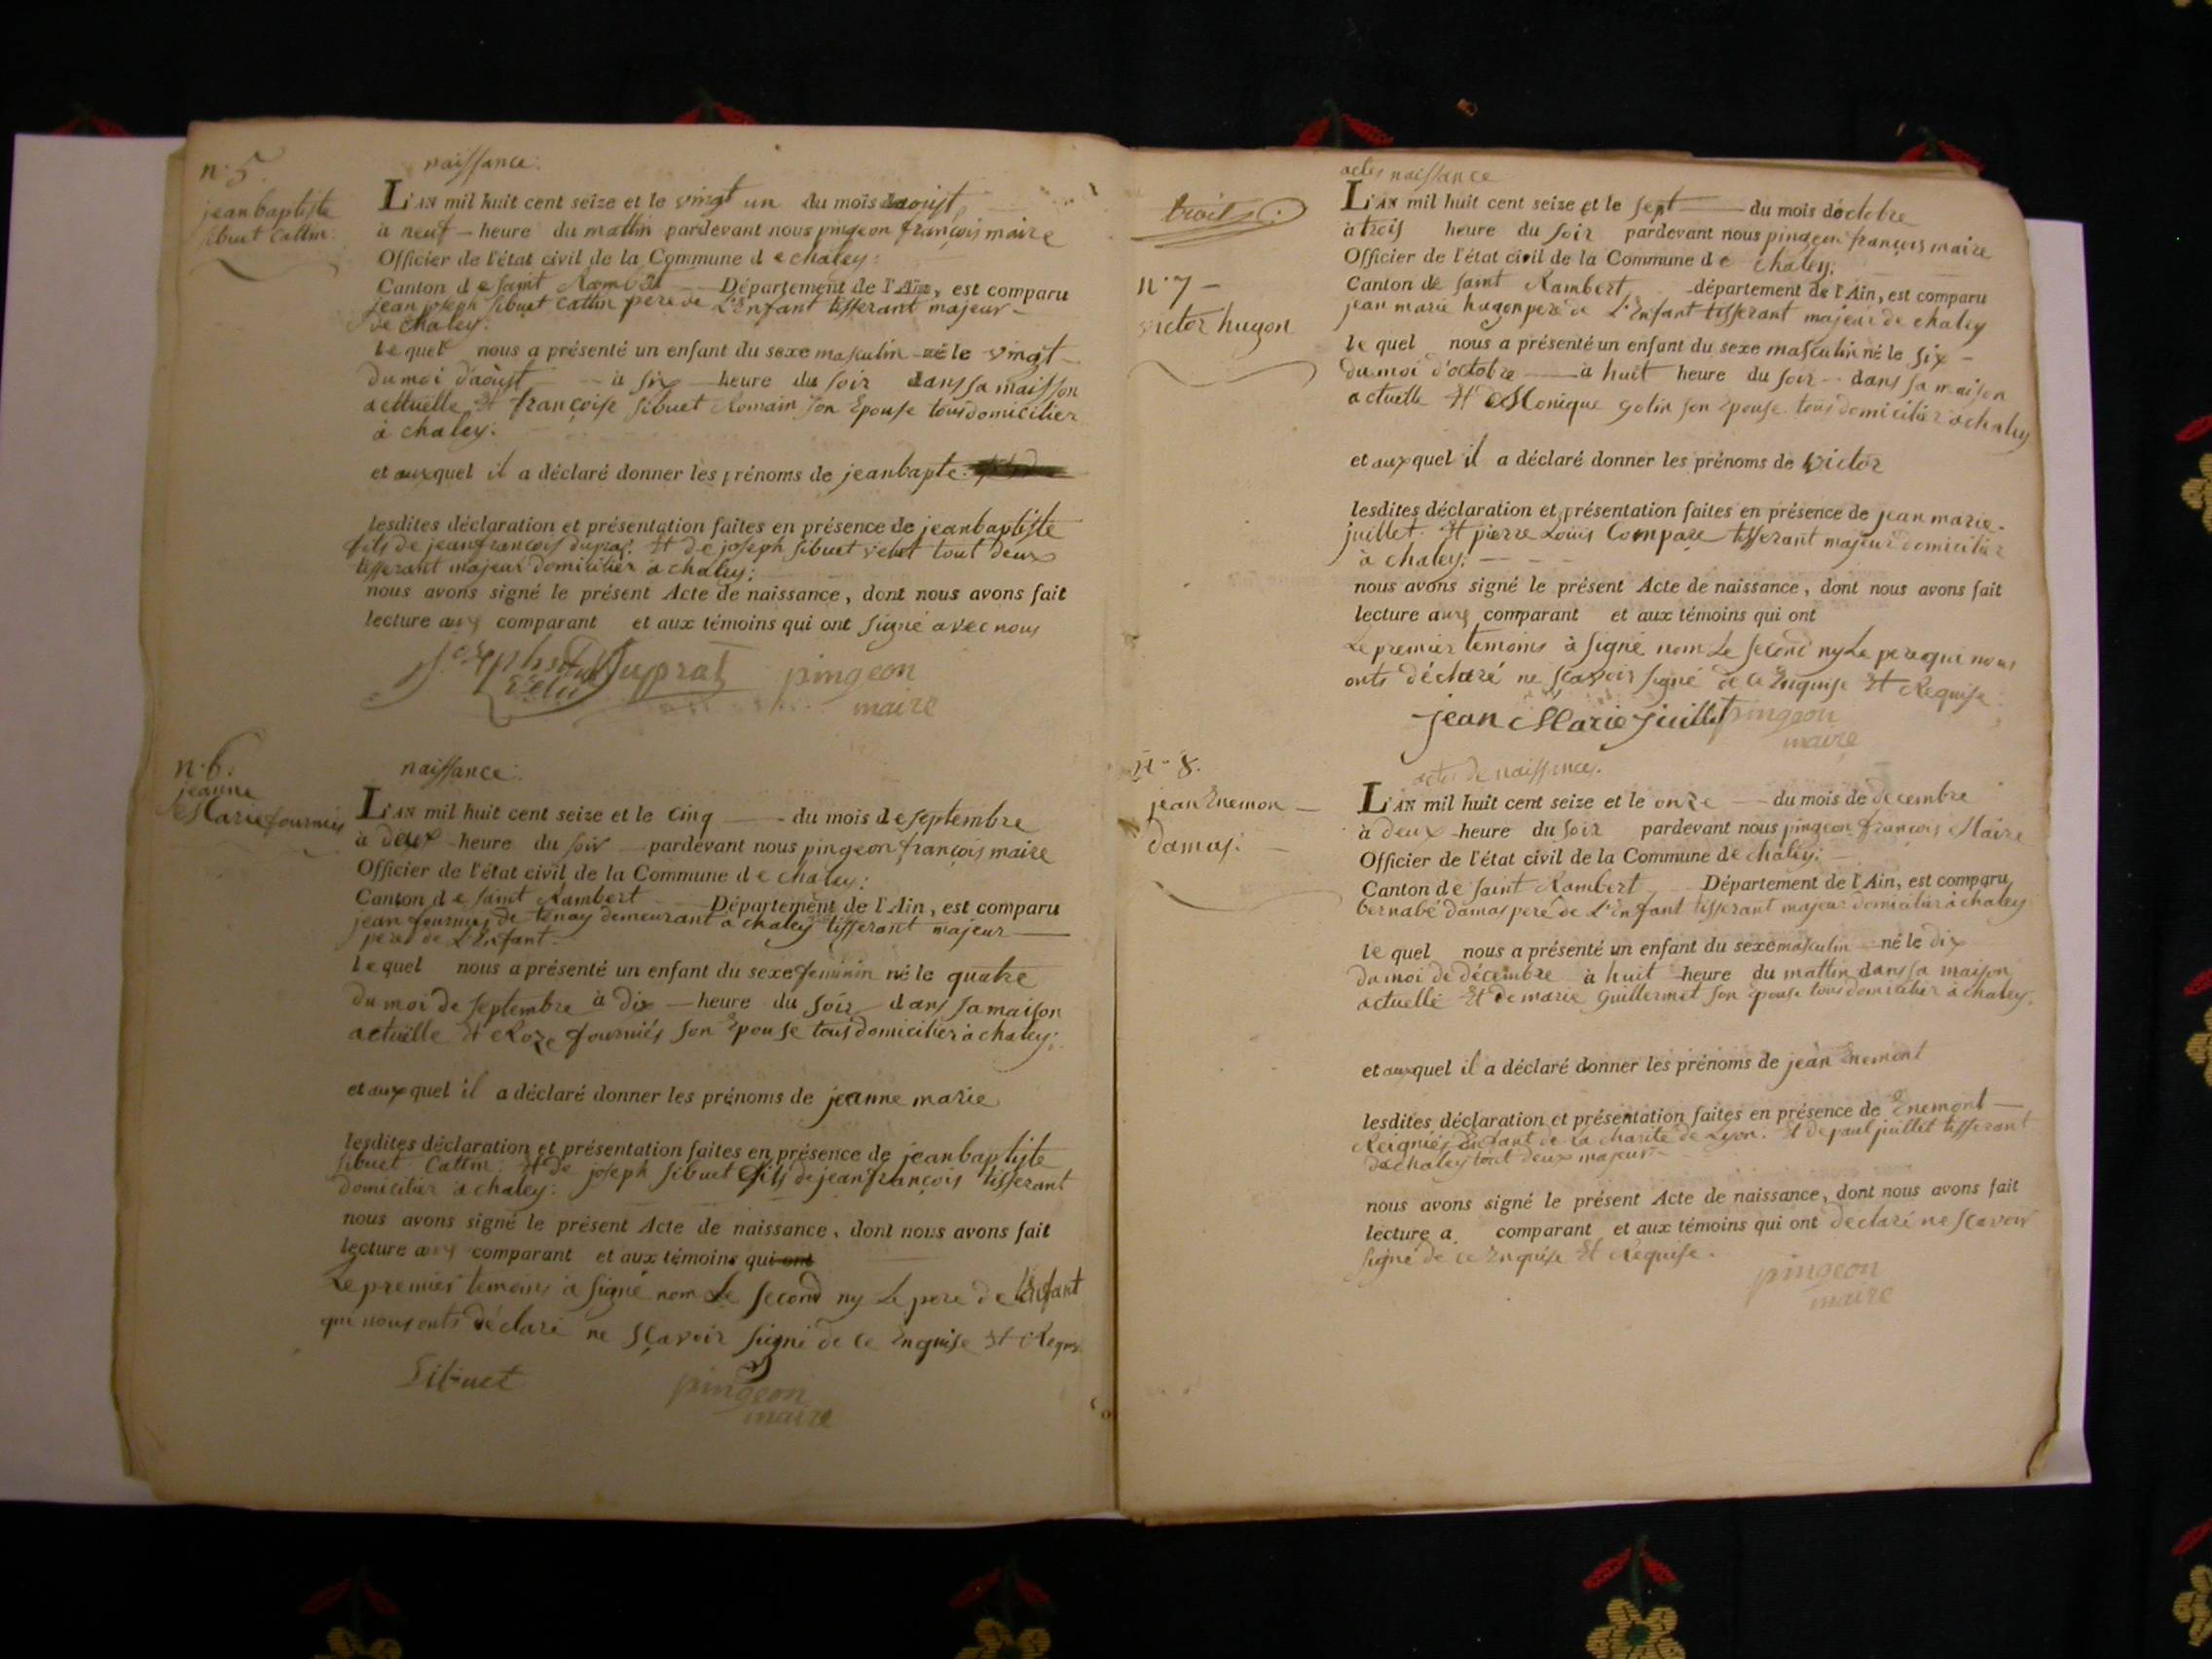 n. 5.
naissance.
jean baptiste
sibuet Cattin.
L'AN mil huit cent seize et le vingt un du mois daoust
à neuf heure du mattin pardevant nous pingeon françois maire
Officier de l'état civil de la Commune de chaley:
Canton de saint Rambert Département de l'Ain, est comparu
jean joseph sibuet Cattin pere de L'Enfant tisserant majeur
de chaley.
lequel nous a présenté un enfant du sexe masculin né le vingt
du moi d'aoust à six heure du soir dans sa maisson
actuelle Et françoise sibuet Romain son Epouse tous domicilier
à chaley.
et auxquel il a déclaré donner les prénoms de jean bapte.
lesdites déclaration et présentation faites en présence de jean baptiste
fils de jean françois duprat. Et de joseph sibuet velut tout deux
tisserant majeur domicilier à chaley;
nous avons signé le présent Acte de naissance, dont nous avons fait
lecture aux comparant et aux témoins qui ont signé avec nous
Duprat pingeon
maire
n. 6.
naissance.
jeanne
Marie fournier
L'AN mil huit cent seize et le cinq du mois de septembre
à deux heure du soir pardevant nous pingeon françois maire
Officier de l'état civil de la Commune de chaley:
Canton de saint Rambert Département de l'Ain, est comparu
jean fournier de tenay demeurant à chaley tisserant majeur
pere de L'Enfant
lequel nous a présenté un enfant du sexe feminin né le quatre
du moi de septembre à dix heure du soir dans sa maison
actuëlle Et Roze fourniés son Epouse tous domicilier à chaley;
et auxquel il a déclaré donner les prénoms de jeanne marie
lesdites déclaration et présentation faites en présence de jean baptiste
sibuet Cattin. Et de joseph sibuet fils de jean françois tisserant
domicilier à chaley:
nous avons signé le présent Acte de naissance, dont nous avons fait
lecture aux comparant et aux témoins qui ont
Le premier temoins à signé nom Le second ny Le pere de l'Enfant
qui nous onts déclaré ne sçavoir signé de ce Enquise Et Requis
Sibuet pingeon
maire
trois.
actes naissance
n. 7
victor hugon
L'AN mil huit cent seize et le sept du mois d'octobre
à trois heure du soir pardevant nous pingeon françois maire
Officier de l'état civil de la Commune de chaley;
Canton de saint Rambert département de l'Ain, est comparu
jean marie hugon pere de L'Enfant tisserant majeur de chaley
lequel nous a présenté un enfant du sexe masculin né le six
du moi d'octobre à huit heure du soir dans sa maison
actuelle Et Monique golin son Epouse tous domicilier à chaley
et auxquel il a déclaré donner les prénoms de Victor
lesdites déclaration et présentation faites en présence de jean marie
juillet. Et pierre Louis Compare tisserant majeur domicilier
à chaley;
nous avons signé le présent Acte de naissance, dont nous avons fait
lecture aux comparant et aux témoins qui ont
Le premier temoins à signé nom Le second ny Le pere qui nous
onts déclaré ne sçavoir signé de ce Enquise Et Requise
jean Marie juillet pingeon
maire
n. 8.
acte de naissance.
jean Enemon
damas.
L'AN mil huit cent seize et le onze du mois de decembre
à deux heure du soir pardevant nous pingeon françois Maire
Officier de l'état civil de la Commune de chaley:
Canton de saint Rambert Département de l'Ain, est comparu
bernabé damas pere de L'Enfant tisserant majeur domicilier à chaley
lequel nous a présenté un enfant du sexe masculin né le dix
du moi de décembre à huit heure du mattin dans sa maison
actuelle Et de marie Guillermet son Epouse tous domicilier à chaley.
et auxquel il a déclaré donner les prénoms de jean Enemont
lesdites déclaration et présentation faites en présence de Enemont
Reigniés Enfant de La charité de Lyon. Et de paul juillet tisserant
de chaley tout deux majeur
nous avons signé le présent Acte de naissance, dont nous avons fait
lecture a comparant et aux témoins qui ont declaré ne sçavoir
signé de ce Enquise Et Requise.
pingeon
maire